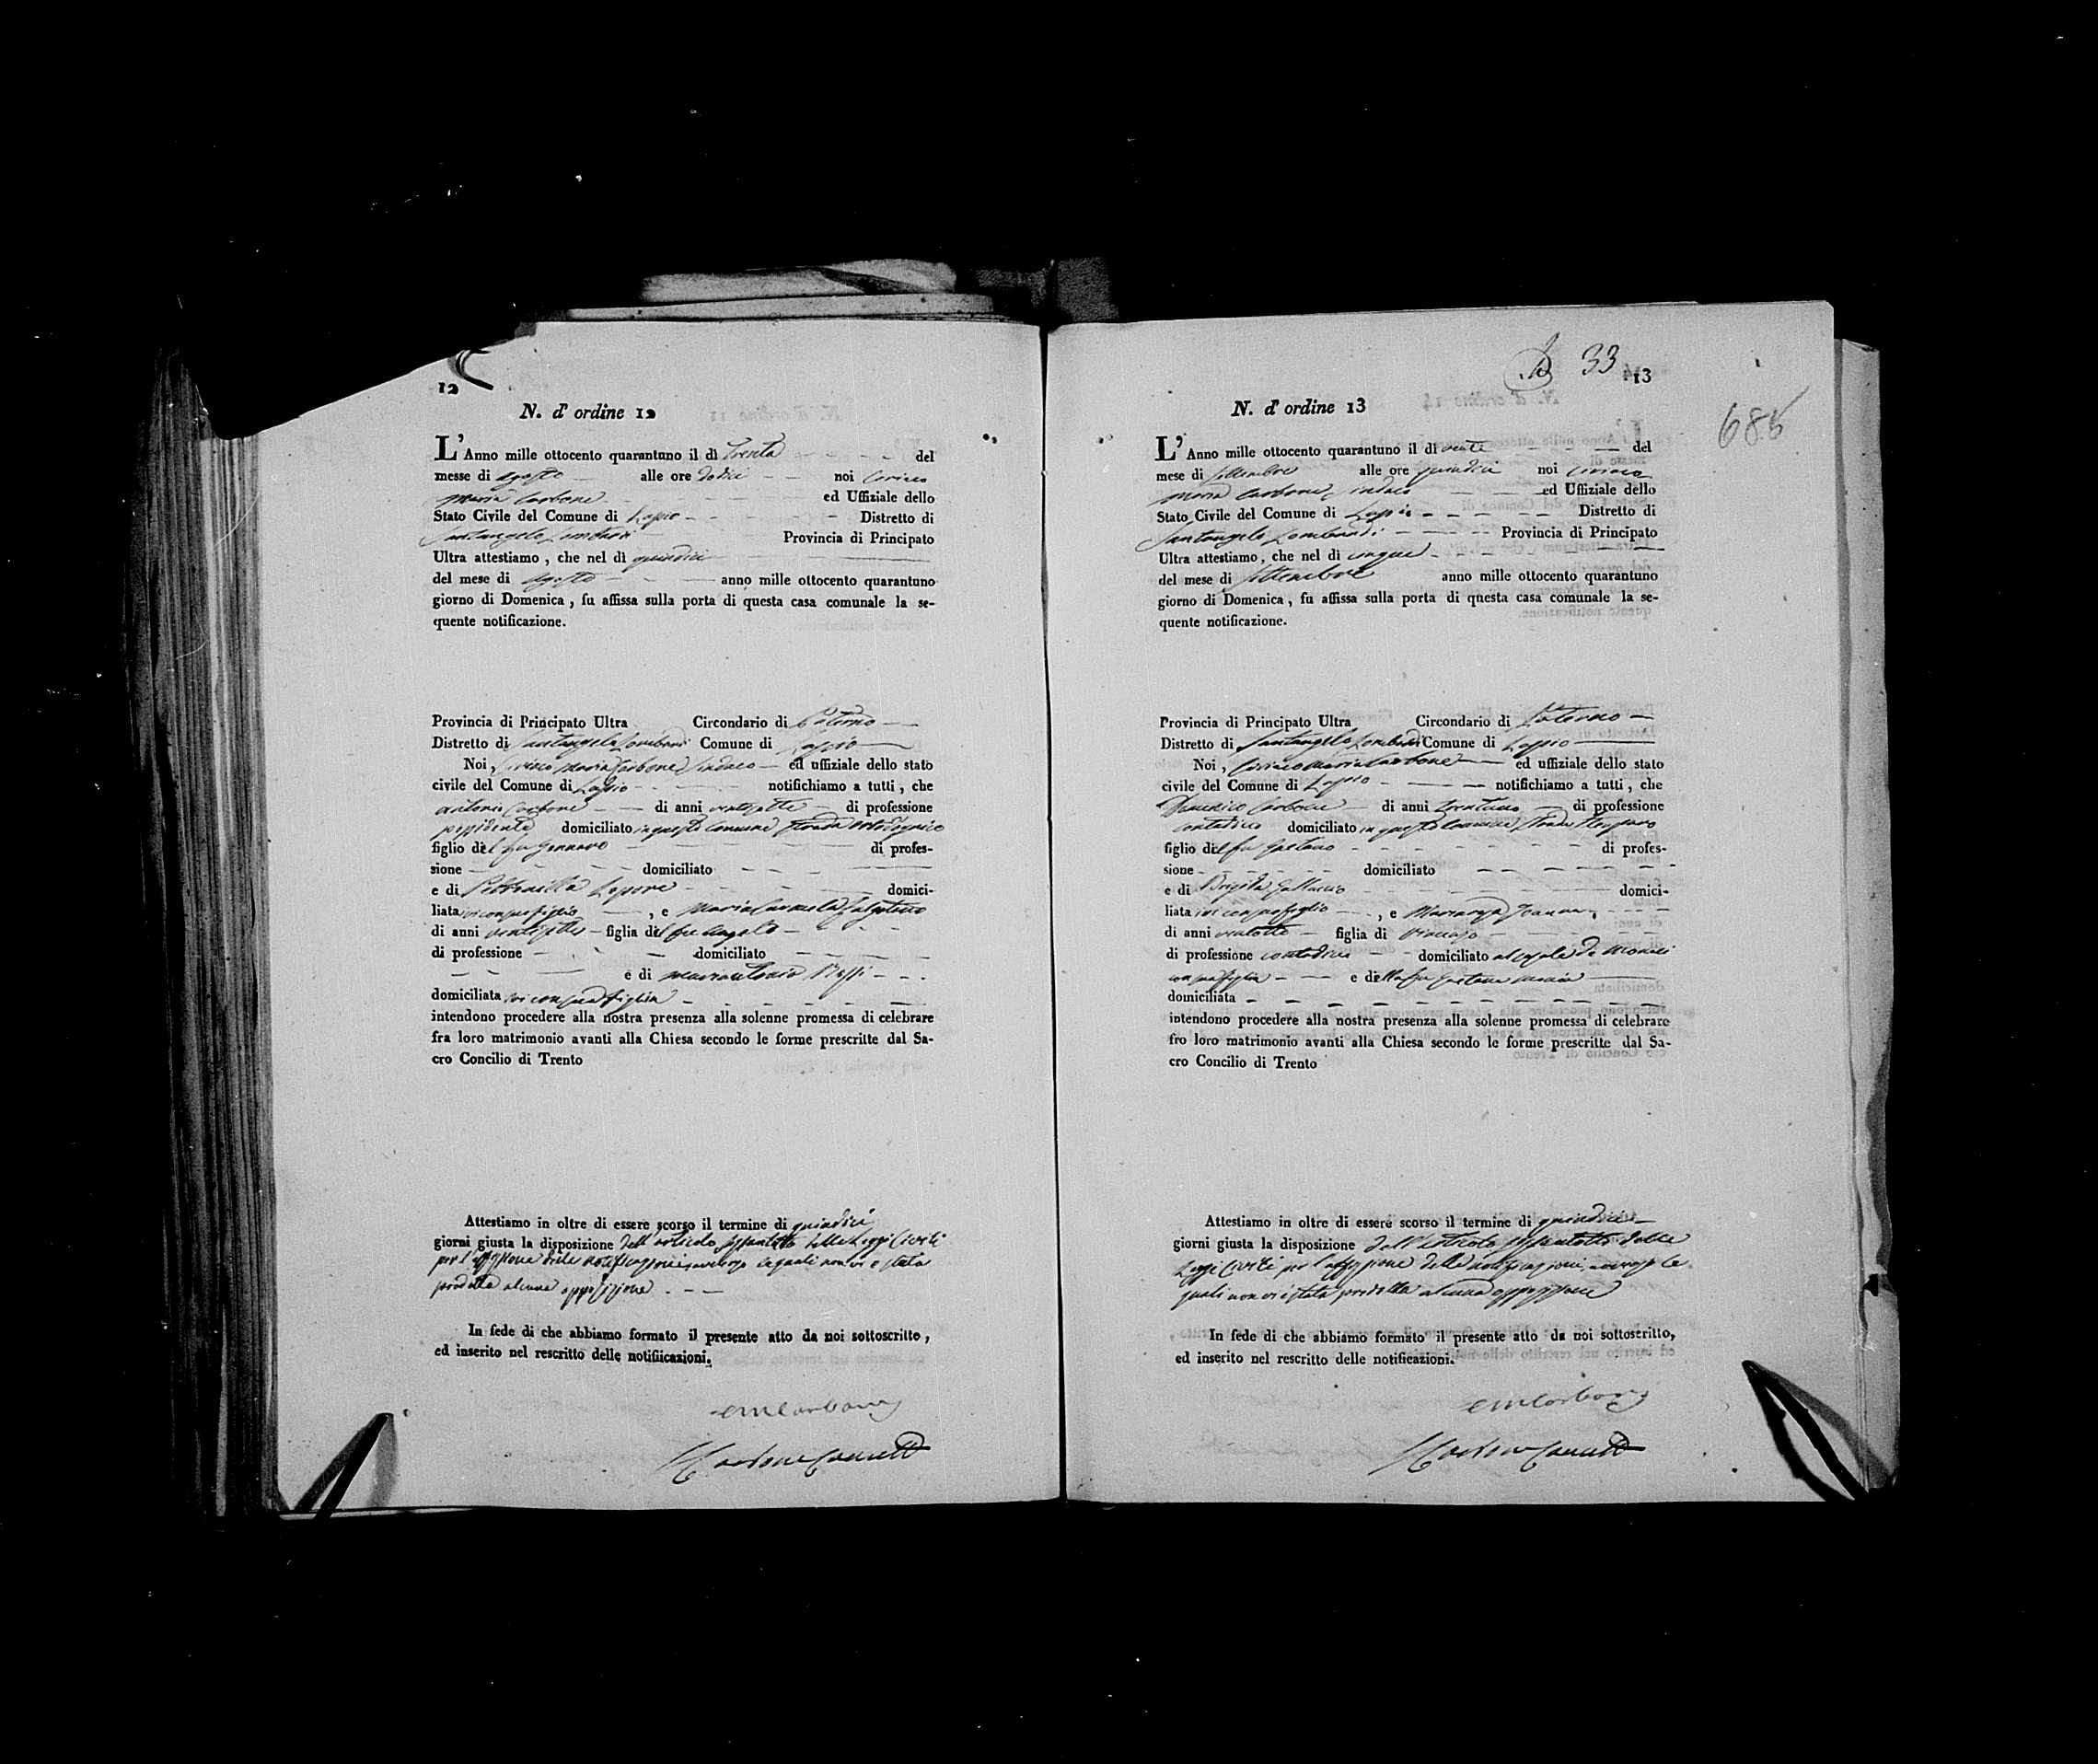 12
N. d' ordine 12
L' Anno mille ottocento quarantuno il dì Trenta del
messe di Agosto alle ore dodici noi Ciriaco
Maria Carbone ed Uffiziale dello
Stato Civile del Comune di Lapio Distretto di
Santangelo Lombardi Provincia di Principato
Ultra attestiamo, che nel dì quindici
del mese di Agosto anno mille ottocento quarantuno
giorno di Domenica, fu affissa sulla porta di questa casa comunale la se-
quente notificazione.
Provincia di Principato Ultra Circondario di Paterno
Distretto di Santangelo Lombardi Comune di Lapio
Noi, Ciriaco Maria Carbone Sindaco ed uffiziale dello stato
civile del Comune di Lapio notifichiamo a tutti, che
Antonio Carbone di anni ventisette di professione
possidente domiciliato in questo Comune strada
figlio del fu Gennaro di profes-
sione domiciliato
e di Petronilla Lepore domici-
liata ivi con suo figlio, e Maria Carmela
di anni ventisette figlia del fu Angelo
di professione domiciliato
e di Mariantonia Rossi
domiciliata ivi con sua figlia
intendono procedere alla nostra presenza alla solenne promessa di celebrare
fra loro matrimonio avanti alla Chiesa secondo le forme prescritte dal Sa-
cro Concilio di Trento
Attestiamo in oltre di essere scorso il termine di quindici
giorni giusta la disposizione dell'articolo sessantotto delle Leggi Civili
per l'affissione delle notificazioni, avverso le quali non vi è stata
prodotta alcuna opposizione.
In fede di che abbiamo formato il presente atto da noi sottoscritto,
ed inserito nel rescritto delle notifiicazioni.
CMCarbone
33
13
685
N. d' ordine 13
L' Anno mille ottocento quarantuno il dì venti del
mese di Settembre alle ore quindici noi Ciriaco
Maria Carbone Sindaco ed Uffiziale dello
Stato Civile del Comune di Lapio Distretto di
Santangelo Lombardi Provincia di Principato
Ultra attestiamo, che nel dì cinque
del mese di Settembre anno mille ottocento quarantuno
giorno di Domenica, fu affissa sulla porta di questa casa comunale la se-
quente notificazione.
Provincia di Principato Ultra Circondario di Paterno
Distretto di Santangelo Lombardi Comune di Lapio
Noi, Ciriaco Maria Carbone ed uffiziale dello stato
civile del Comune di Lapio notifichiamo a tutti, che
Domenico Carbone di anni trentuno di professione
contadino domiciliato in questo Comune strada
figlio del fu Gaetano di profes-
sione domiciliato
e di Brigida Galluccio domici-
liata ivi con suo figlio, e
di anni ventotto figlia di
di professione contadino domiciliato al casale de
con sua figlia e della fu Gaetana
domiciliata
intendono procedere alla nostra presenza alla solenne promessa di celebrare
fro loro matrimonio avanti alla Chiesa secondo le forme prescritte dal Sa-
cro Concilio di Trento
Attestiamo in oltre di essere scorso il termine di quindici
giorni giusta la disposizione dell'articolo sessantotto delle
Leggi Civili per l'affissione delle notificazioni, avverso le
quali non vi è stata prodotta alcuna opposizione
In fede di che abbiamo formato il presente atto da noi sottoscritto,
ed inserito nel rescritto delle notificazioni.
CMCarbone